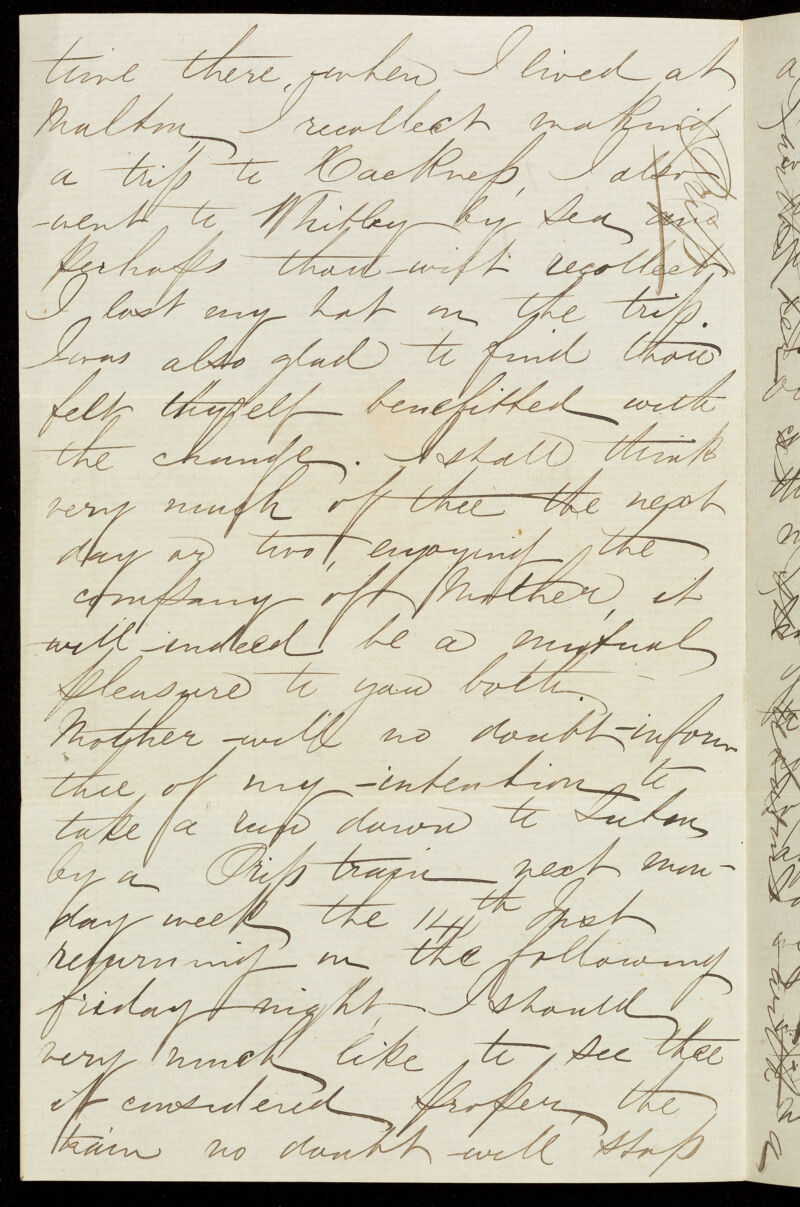 time there, when I lived at
Malton, I recollect making
a trip to Hackness, I also
went to Whitby by sea, and
Perhaps thou wilt recollect
I lost my hat on the trip.
I was also glad to find thou
felt thyself benefitted with
the change. I shall think
very much of thee the next
day or two, enjoying the
company of Mother, it
will indeed be a mutual
pleasure to you both.
Mother will no doubt inform
thee of my intention to
take a run down to Luton
by a Trip train next mon-
day week the 14th Inst
returning on the following
friday night, I should
very much like to see thee
if considered proper, the
train no doubt will stop